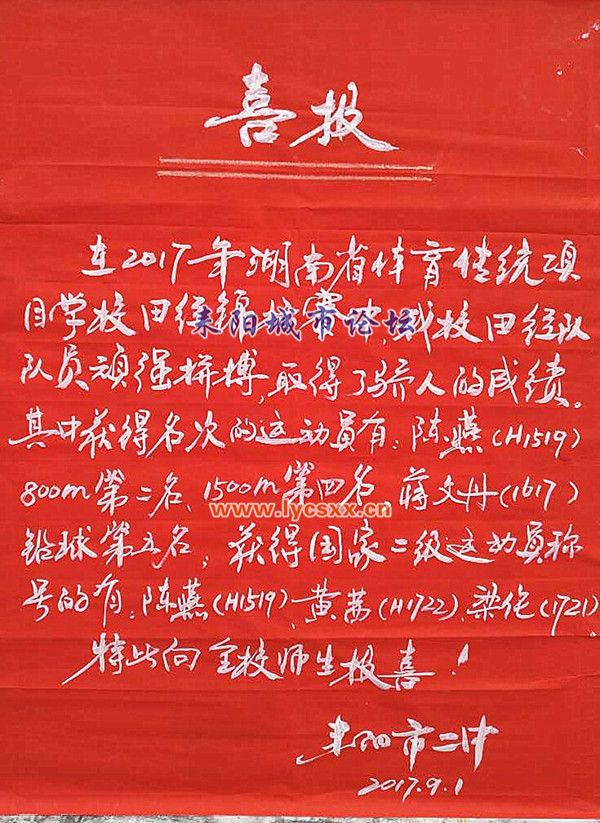 喜报
在2017年湖南省体育传统项
目学校田径锦标赛中,我校田径队
耒阳城市论坛
队员顽强拼搏,取得了骄人的成绩。
其中获得名次的运动员有:陈燕(H1519)
800m第二名、1500m第四名、蒋文丹(1617)
www.lycsxx.cn
铅球第五名,获得国家二级运动员称
号的有:陈燕(H1519)、黄(H1722)、梁(1721)
特此向全校师生报喜!
耒阳市二中
2017.9.1